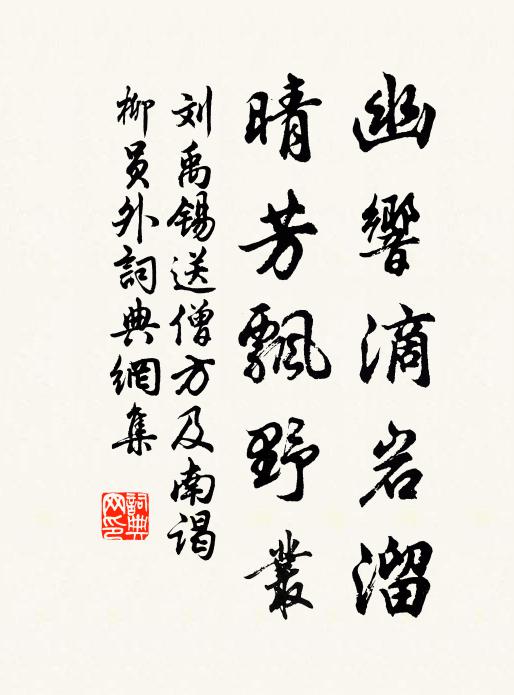 幽響滴岩溜
晴芳飄野叢
刘禹锡送僧方及南谒
柳員外詞典網集
詞典
网印